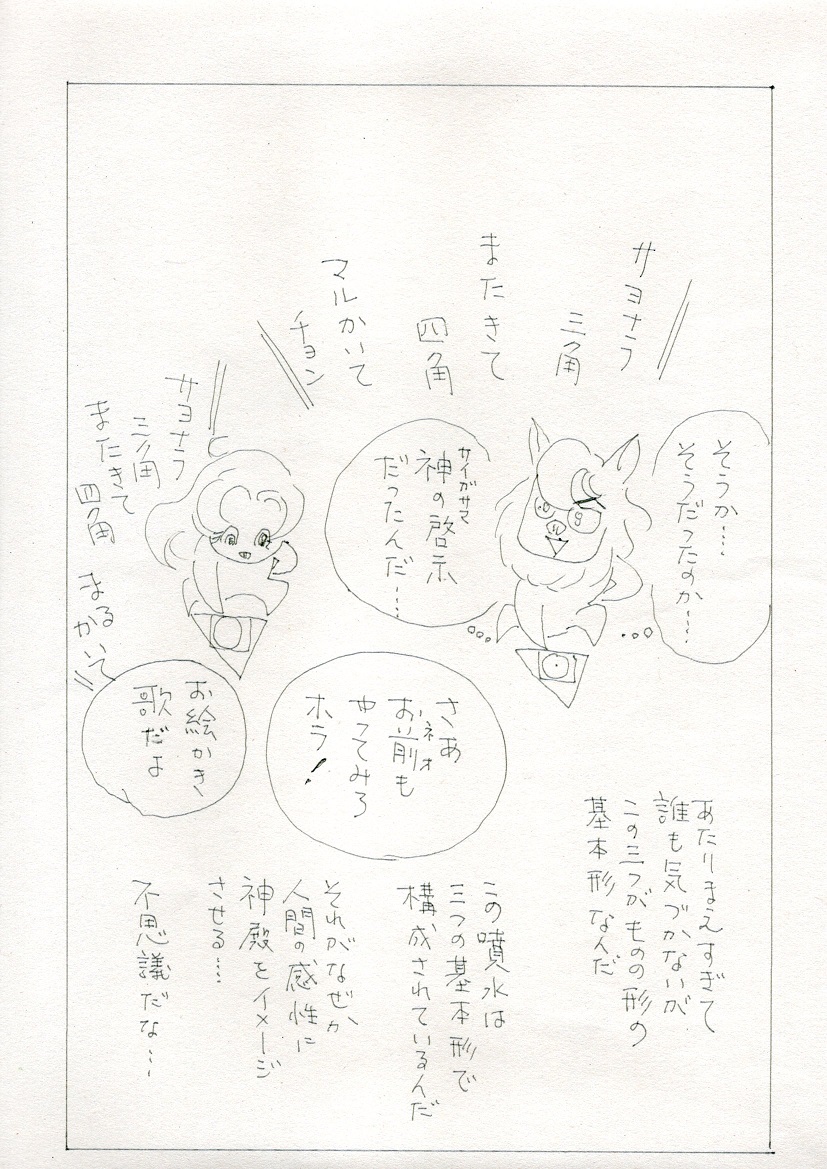 そうか……
そうだったのか……
サヨナラ
三角
またきて
四角
マルかいて
チョン
神の啓示
サイガサマ
だったんだ…
サヨナラ
三角
またきて
四角
まるかいて
お絵かき
歌だよ
さあ
お前も
ネオ
やってみろ
ホラ!
あたりまえすぎて
誰も気づかないが
この三つがものの形の
基本形なんだ
この噴水は
三つの基本形で
構成されているんだ
それがなぜか、
人間の感性に
神殿をイメージ
させる……
不思議だな…